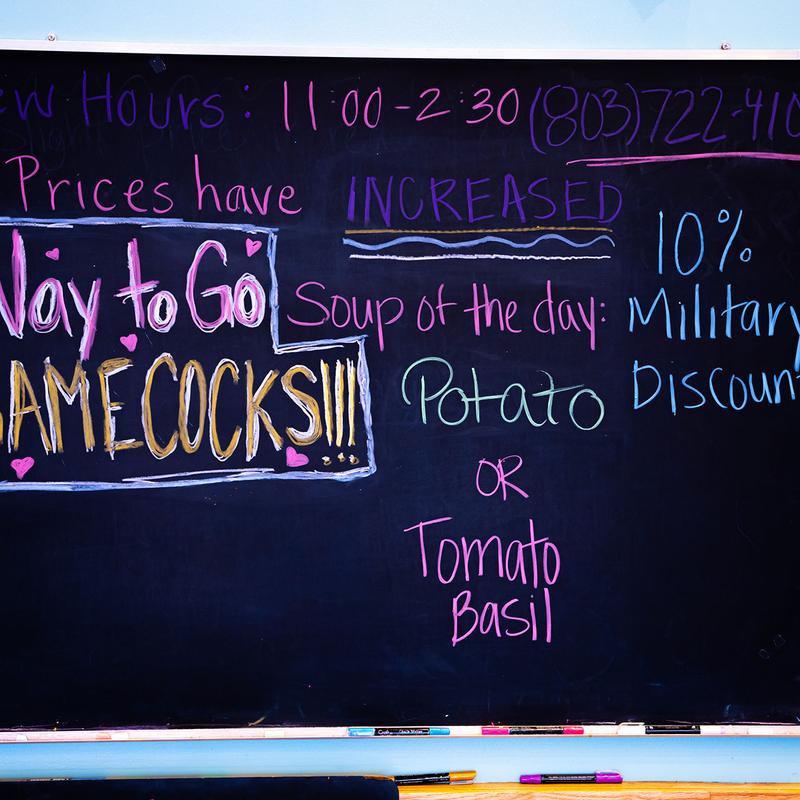 ew Hours: 11:00-2:30 (803)722-410
Prices have INCREASED
Way to Go
GAMECOCKS!!!
Soup of the day:
Potato
OR
Tomato
Basil
10%
Military
Discount